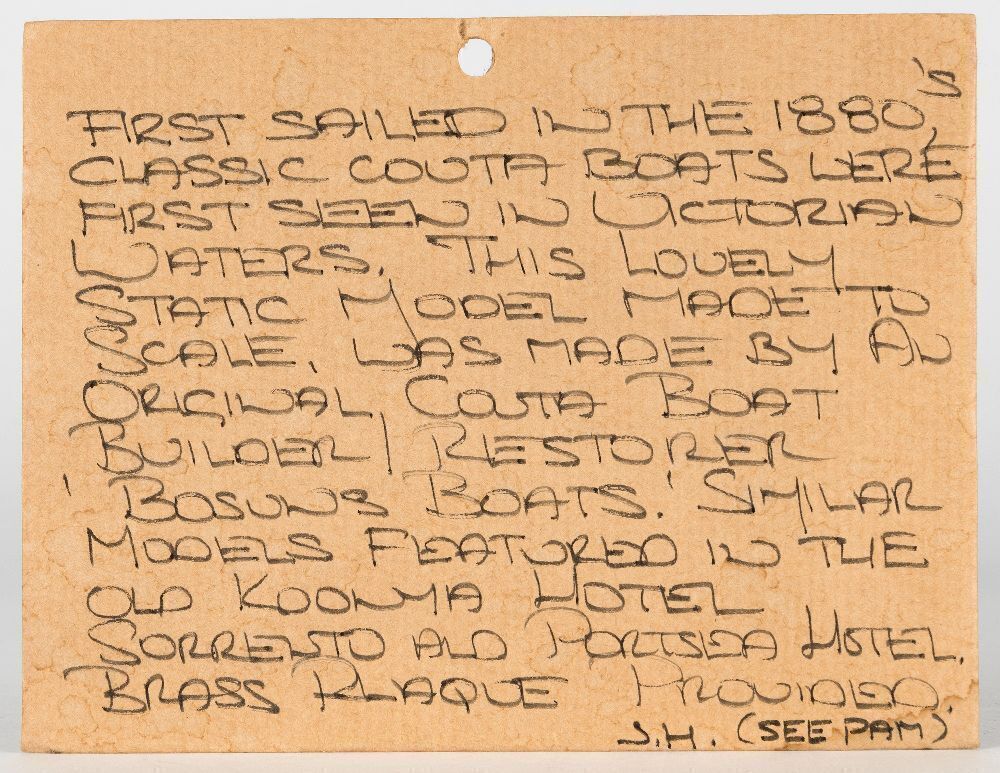 FIRST SAILED IN THE 1880's,
CLASSIC COUTA BOATS WERE
FIRST SEEN IN VICTORIAN
WATERS. THIS LOVELY
STATIC MODEL MADE TO
SCALE, WAS MADE BY AN
ORIGINAL COUTA BOAT
BUILDER / RESTORER
'BOSUNS BOATS.' SIMILAR
MODELS FEATURED IN THE
OLD KOONYA HOTEL
SORRENTO AND PORTSEA HOTEL.
BRASS PLAQUE PROVIDED.
J.H. (SEE PAM)